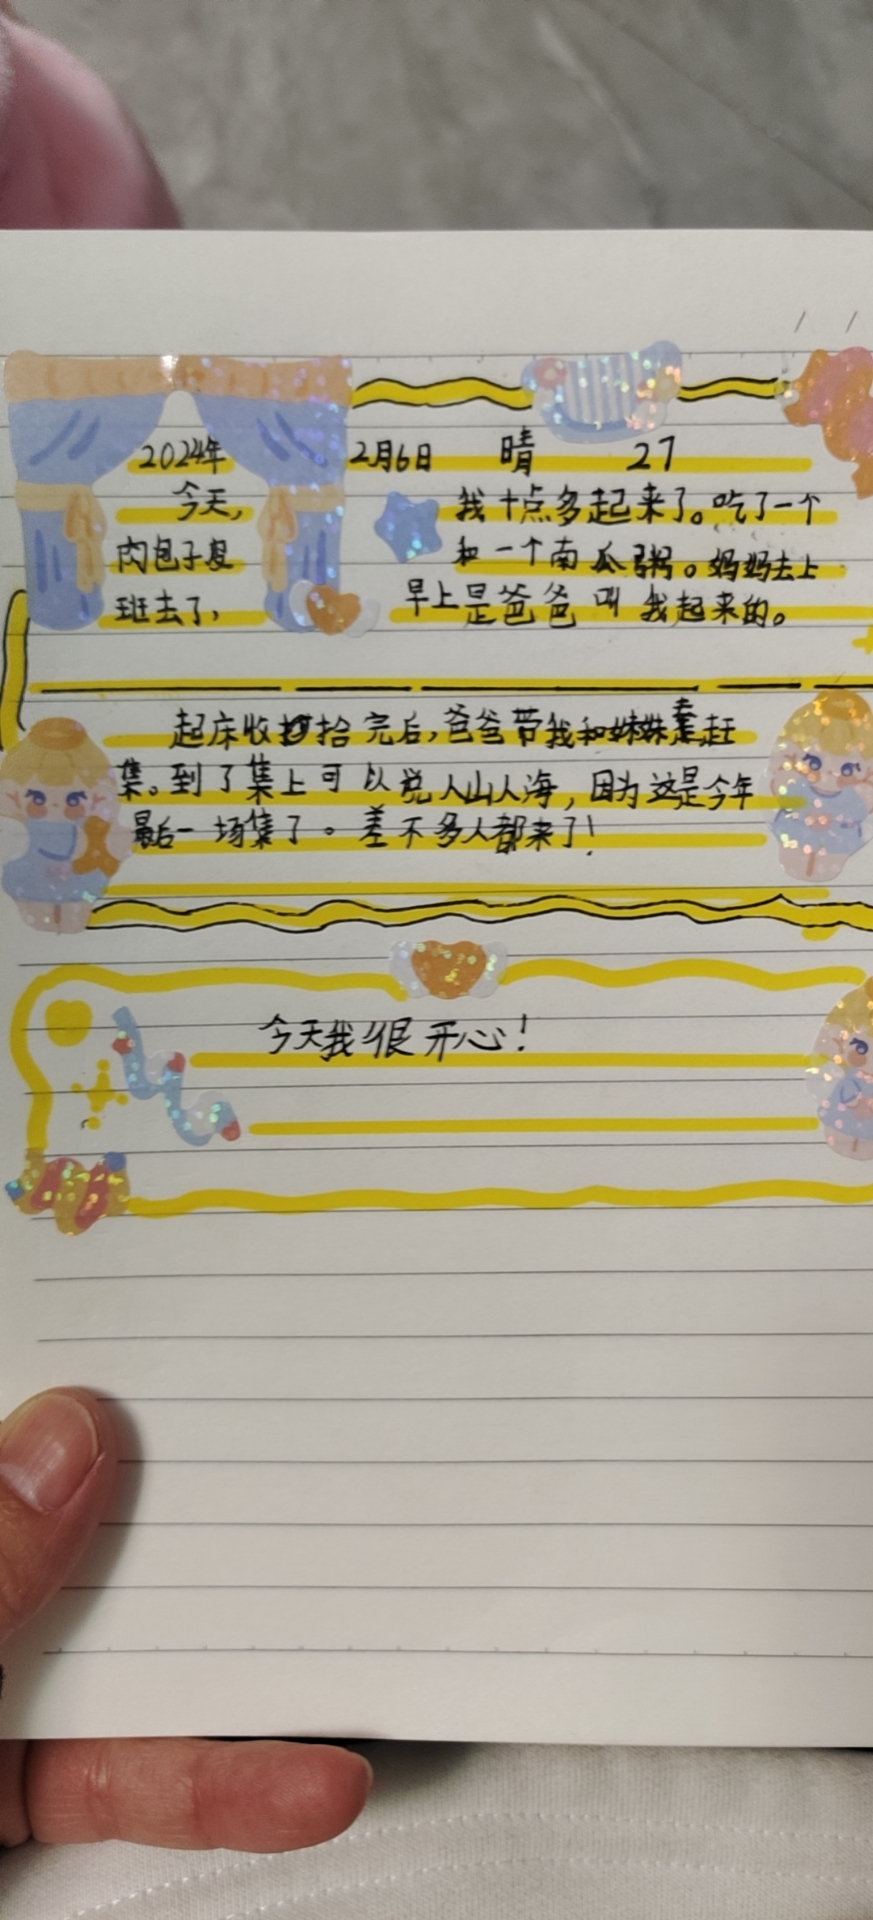 2024年 2月6日 晴 27
今天, 我十点多起来了。吃了一个
肉包子 和一个南瓜粥。妈妈去上
班去了, 早上是爸爸叫我起来的。
起床收拾完后,爸爸带我和妹妹去赶
集。到了集上可以说人山人海,因为这是今年
最后一场集了。差不多人都来了!
今天我很开心!